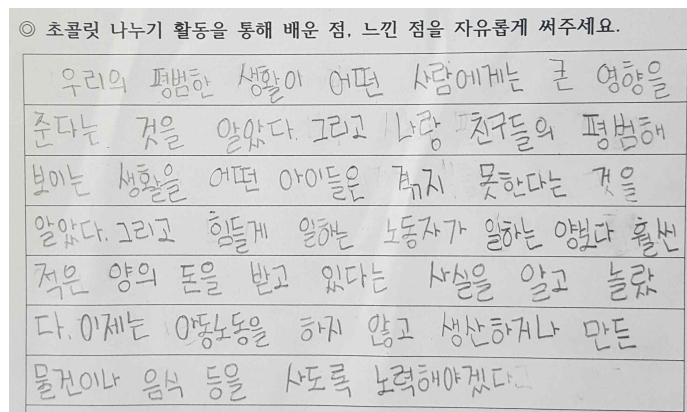 ◎ 초콜릿 나누기 활동을 통해 배운 점, 느낀 점을 자유롭게 써주세요.
우리의 평범한 생활이 어떤 사람에게는 큰 영향을
준다는 것을 알았다. 그리고 나랑 친구들의 평범해
보이는 생활을 어떤 아이들은 겪지 못한다는 것을
알았다. 그리고 힘들게 일하는 노동자가 일하는 양보다 훨씬
적은 양의 돈을 받고 있다는 사실을 알고 놀랐
다. 이제는 아동노동을 하지 않고 생산하거나 만든
물건이나 음식 등을 사도록 노력해야겠다.